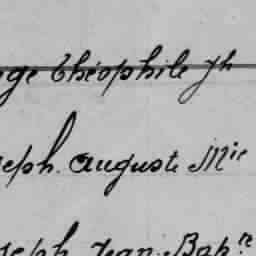 ge Théophile Jh
seph. Auguste Mie
seph Jean-Bapte